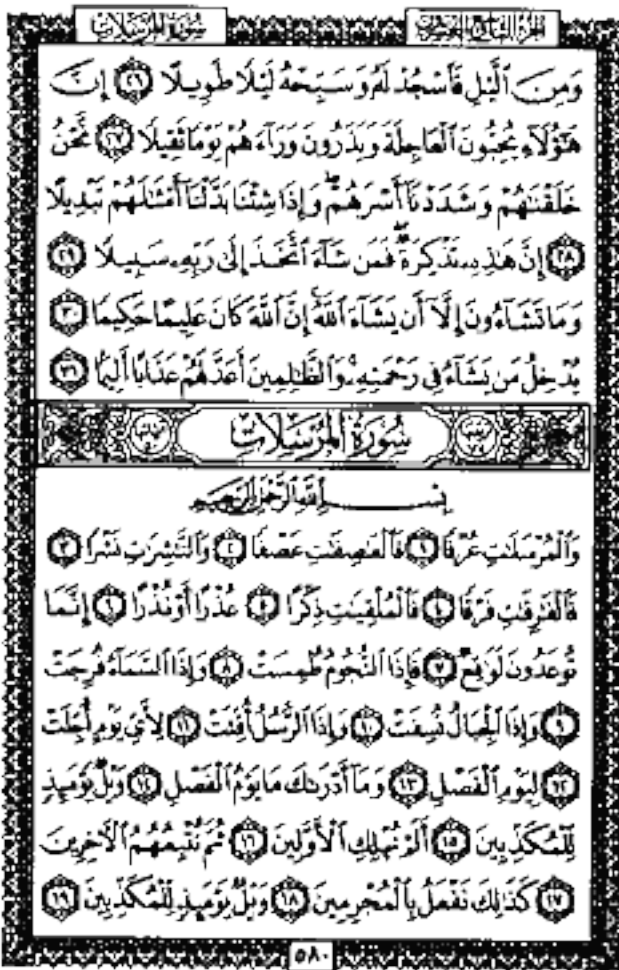 سُورَةُ المُرْسَلَات الجزء التاسع والعشرون
وَمِنَ ٱلَّيْلِ فَٱسْجُدْ لَهُۥ وَسَبِّحْهُ لَيْلًا طَوِيلًا ٢٦ إِنَّ
هَٰٓؤُلَآءِ يُحِبُّونَ ٱلْعَاجِلَةَ وَيَذَرُونَ وَرَآءَهُمْ يَوْمًا ثَقِيلًا ٢٧ نَّحْنُ
خَلَقْنَٰهُمْ وَشَدَدْنَآ أَسْرَهُمْ ۖ وَإِذَا شِئْنَا بَدَّلْنَآ أَمْثَٰلَهُمْ تَبْدِيلًا
٢٨ إِنَّ هَٰذِهِۦ تَذْكِرَةٌ ۖ فَمَن شَآءَ ٱتَّخَذَ إِلَىٰ رَبِّهِۦ سَبِيلًا ٢٩
وَمَا تَشَآءُونَ إِلَّآ أَن يَشَآءَ ٱللَّهُ ۚ إِنَّ ٱللَّهَ كَانَ عَلِيمًا حَكِيمًا ٣٠
يُدْخِلُ مَن يَشَآءُ فِى رَحْمَتِهِۦ ۚ وَٱلظَّٰلِمِينَ أَعَدَّ لَهُمْ عَذَابًا أَلِيمًۢا ٣١
سُورَةُ المُرْسَلَاتِ
بِسْمِ ٱللَّهِ ٱلرَّحْمَٰنِ ٱلرَّحِيمِ
وَٱلْمُرْسَلَٰتِ عُرْفًا ١ فَٱلْعَٰصِفَٰتِ عَصْفًا ٢ وَٱلنَّٰشِرَٰتِ نَشْرًا ٣
فَٱلْفَٰرِقَٰتِ فَرْقًا ٤ فَٱلْمُلْقِيَٰتِ ذِكْرًا ٥ عُذْرًا أَوْ نُذْرًا ٦ إِنَّمَا
تُوعَدُونَ لَوَٰقِعٌ ٧ فَإِذَا ٱلنُّجُومُ طُمِسَتْ ٨ وَإِذَا ٱلسَّمَآءُ فُرِجَتْ
٩ وَإِذَا ٱلْجِبَالُ نُسِفَتْ ١٠ وَإِذَا ٱلرُّسُلُ أُقِّتَتْ ١١ لِأَىِّ يَوْمٍ أُجِّلَتْ
١٢ لِيَوْمِ ٱلْفَصْلِ ١٣ وَمَآ أَدْرَىٰكَ مَا يَوْمُ ٱلْفَصْلِ ١٤ وَيْلٌ يَوْمَئِذٍ
لِّلْمُكَذِّبِينَ ١٥ أَلَمْ نُهْلِكِ ٱلْأَوَّلِينَ ١٦ ثُمَّ نُتْبِعُهُمُ ٱلْءَاخِرِينَ
١٧ كَذَٰلِكَ نَفْعَلُ بِٱلْمُجْرِمِينَ ١٨ وَيْلٌ يَوْمَئِذٍ لِّلْمُكَذِّبِينَ ١٩
٥٨٠